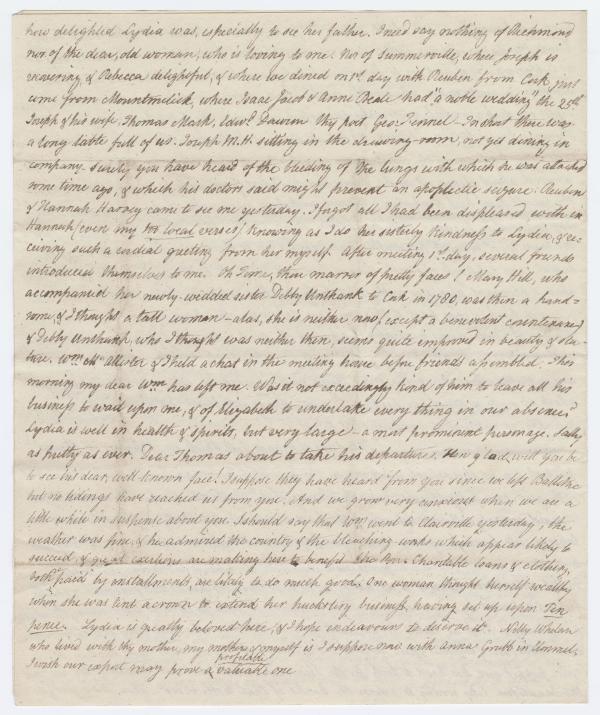 how delighted Lydia was, especially to see her father. I need say nothing of Richmond
nor of the dear, old woman, who is loving to me. Nor of Summerville, where Joseph is
recovering, & Rebecca delightful, & where we dined on 1st day with Reuben from Cork, just
come from Mountmelick, where Isaac Jacob & Anne Beale had "a noble wedding" the 25th
Joseph & his wife, Thomas Mark, Edwd. Dawson thy poet Geo: Fennel—In short there was
a long table full of us. Joseph M. H. sitting in the drawing-room, not yet dining in
company. surely you have heard of the bleeding of the lungs with which he was attacked
some time ago, & which his doctors said might prevent an apoplectic seizure. Reuben
& Hannah Harvey came to see me yesterday. I forgot all I had been displeased with in
Hannah (even my local verses) knowing as I do her sisterly kindness to Lydia, & re-
ceiving such a cordial greeting from her myself. After meeting 1st. day, several friends
introduced themselves to me. Oh Time, thou marrer of pretty faces! Mary Hill, who
accompanied her newly-wedded sister Debby Unthank to Cork in 1780, was then a hand-
some, & I thought a tall woman—alas, she is neither now (except a benevolent countenance)
& Debby Unthank, who I thought was neither then, seems quite improved in beauty & sta-
ture. Wm. McAllister & I held a chat in the meeting house before friends assembled. This
morning my dear Wm. has left me. Was it not exceedingly kind of him to leave all his
business to wait upon me, & of Elizabeth to undertake every thing in our absence?
Lydia is well in health & spirits, but very large—a most prominent personage. Sally
as pretty as ever. Dear Thomas about to take his departure. How glad will you be
to see his dear, well known face! I suppose they have heard from you since we left Ballitore
but no tidings have reached us from you. And we grow very anxious when we are a
little while in suspense about you. I should say that Wm. went to Clareville yesterday, the
weather was fine, & he admired the country & the bleaching-works which appear likely to
succeed, & great exertions are making here to benefit the Poor. Charitable loans & clothing,
both paid by installments, are likely to do much good. One woman thought herself wealthy
when she was lent a crown to extend her huckstery business, having set up upon Ten
pence. Lydia is greatly beloved here, & I hope endeavours to deserve it. Nelly Whelan
who lived with thy mother, my mother & myself is I suppose now with Anna Grubb in Clonmel.
I wish our export may prove a profitable valuable one